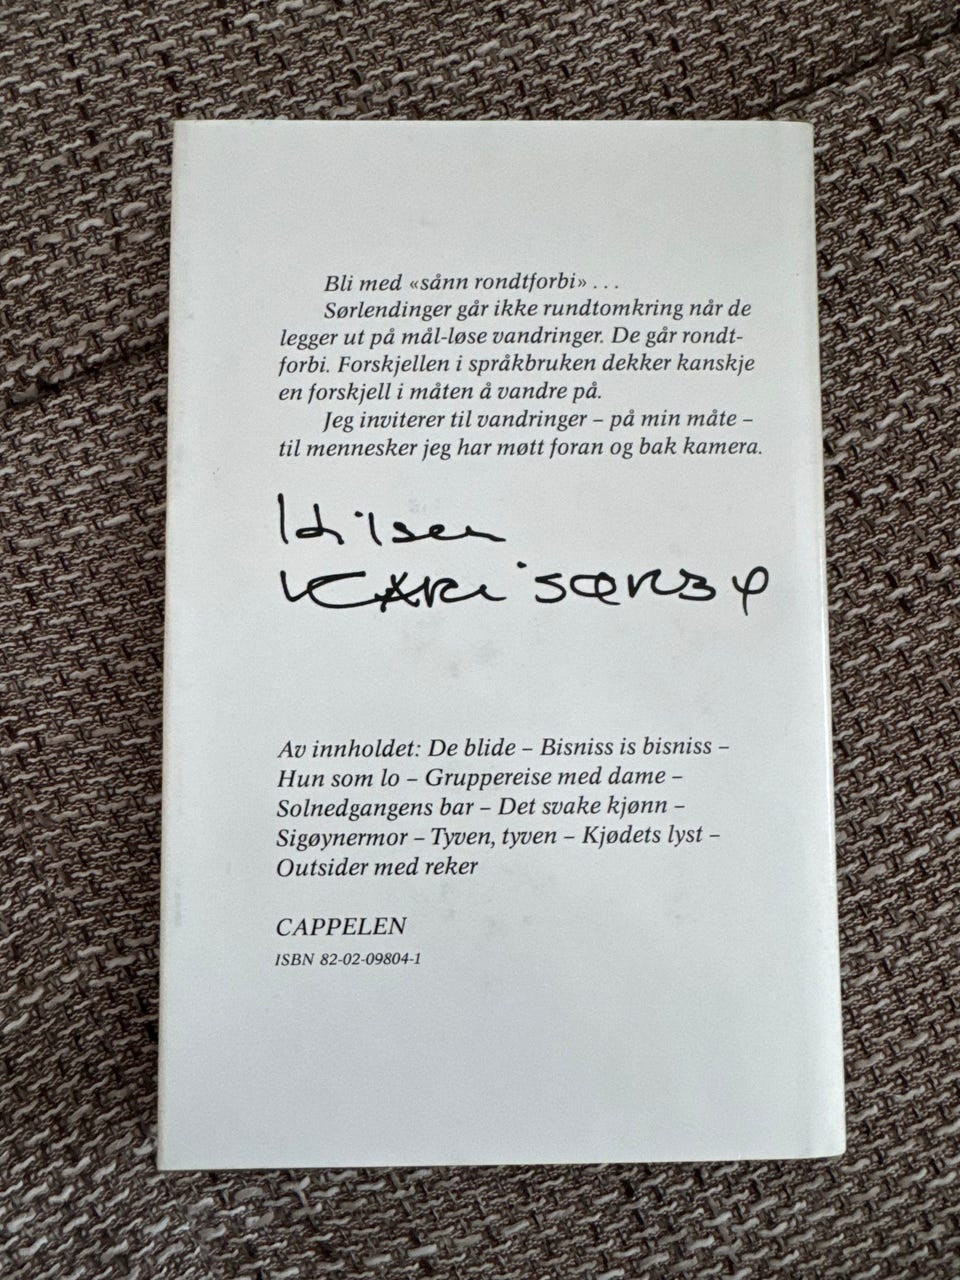 Bli med «sånn rondtforbi» . . .
Sørlendinger går ikke rundtomkring når de
legger ut på mål-løse vandringer. De går rondt-
forbi. Forskjellen i språkbruken dekker kanskje
en forskjell i måten å vandre på.
Jeg inviterer til vandringer – på min måte –
til mennesker jeg har møtt foran og bak kamera.
Hilsen
KARi SØRBY
Av innholdet: De blide – Bisniss is bisniss –
Hun som lo – Gruppereise med dame –
Solnedgangens bar – Det svake kjønn –
Sigøynermor – Tyven, tyven – Kjødets lyst –
Outsider med reker
CAPPELEN
ISBN 82-02-09804-1